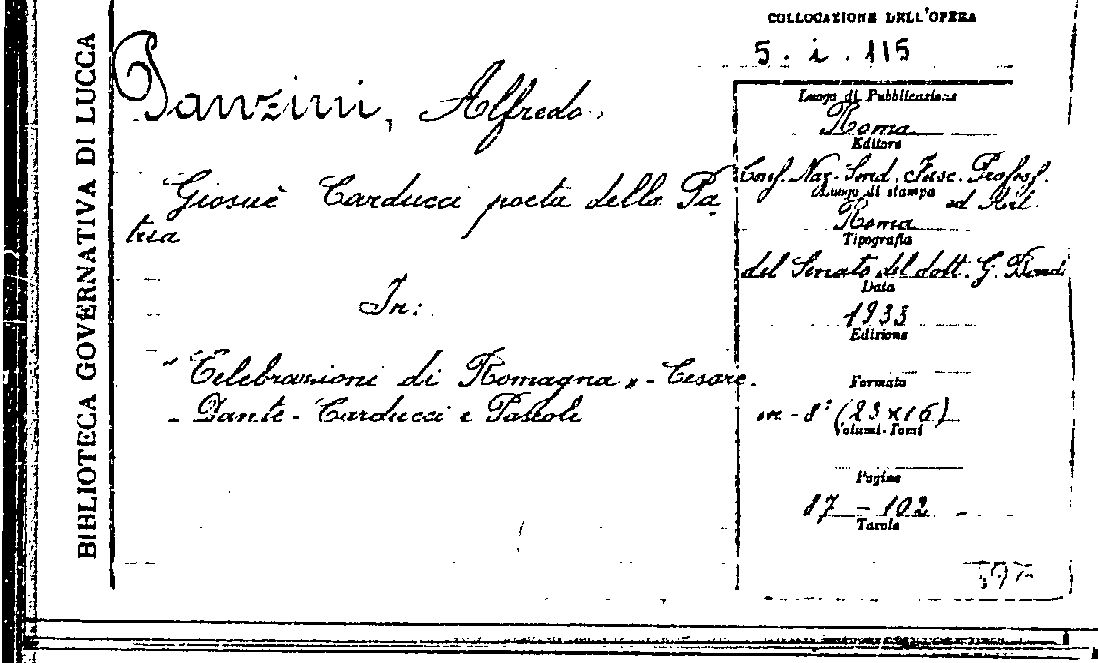 BIBLIOTECA GOVERNATIVA DI LUCCA
COLLOCAZIONE DELL'OPERA
5. i. 115
Panzini, Alfredo.
Giosuè Carducci poeta della Pa-
tria
In:
"Celebrazioni di Romagna" - Cesare.
- Dante - Carducci e Pascoli
Luogo di Pubblicazione
Roma
Editore
Conf. Naz. Sind. Fasc. Profess.
ed Art.
Luogo di stampa
Roma
Tipografia
del Senato del dott. G. Bardi
Data
1933
Edizione
Formato
in-8° (23x16)
Volumi-Tomi
Pagine
87-102
Tavole